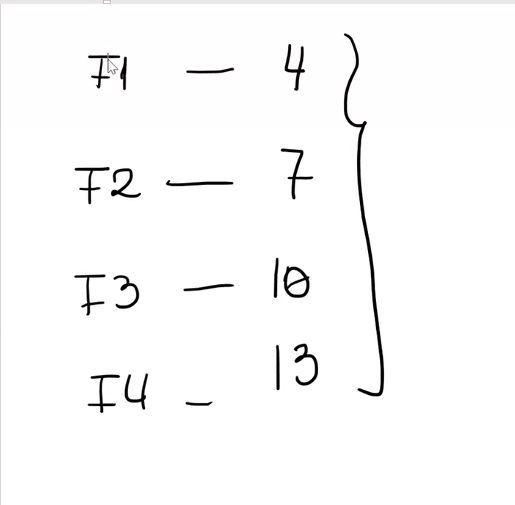 F1 — 4
F2 — 7
F3 — 10
F4 - 13